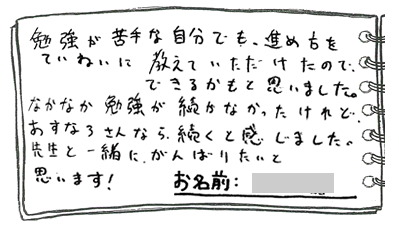 勉強が苦手な自分でも、進め方を
ていねいに 教えていただけたので、
できるかもと思いました。
なかなか勉強が続かなかったけれど、
あすなろさんなら、続くと感じました。
先生と一緒に、がんばりたいと
思います!
お名前: